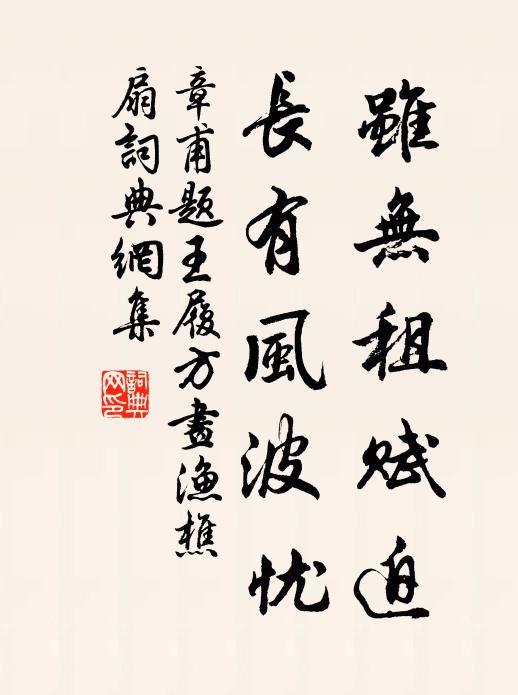 雖無租赋迫
長有風波忧
章甫题王履方畫漁樵
扇詞典網集
詞典網印